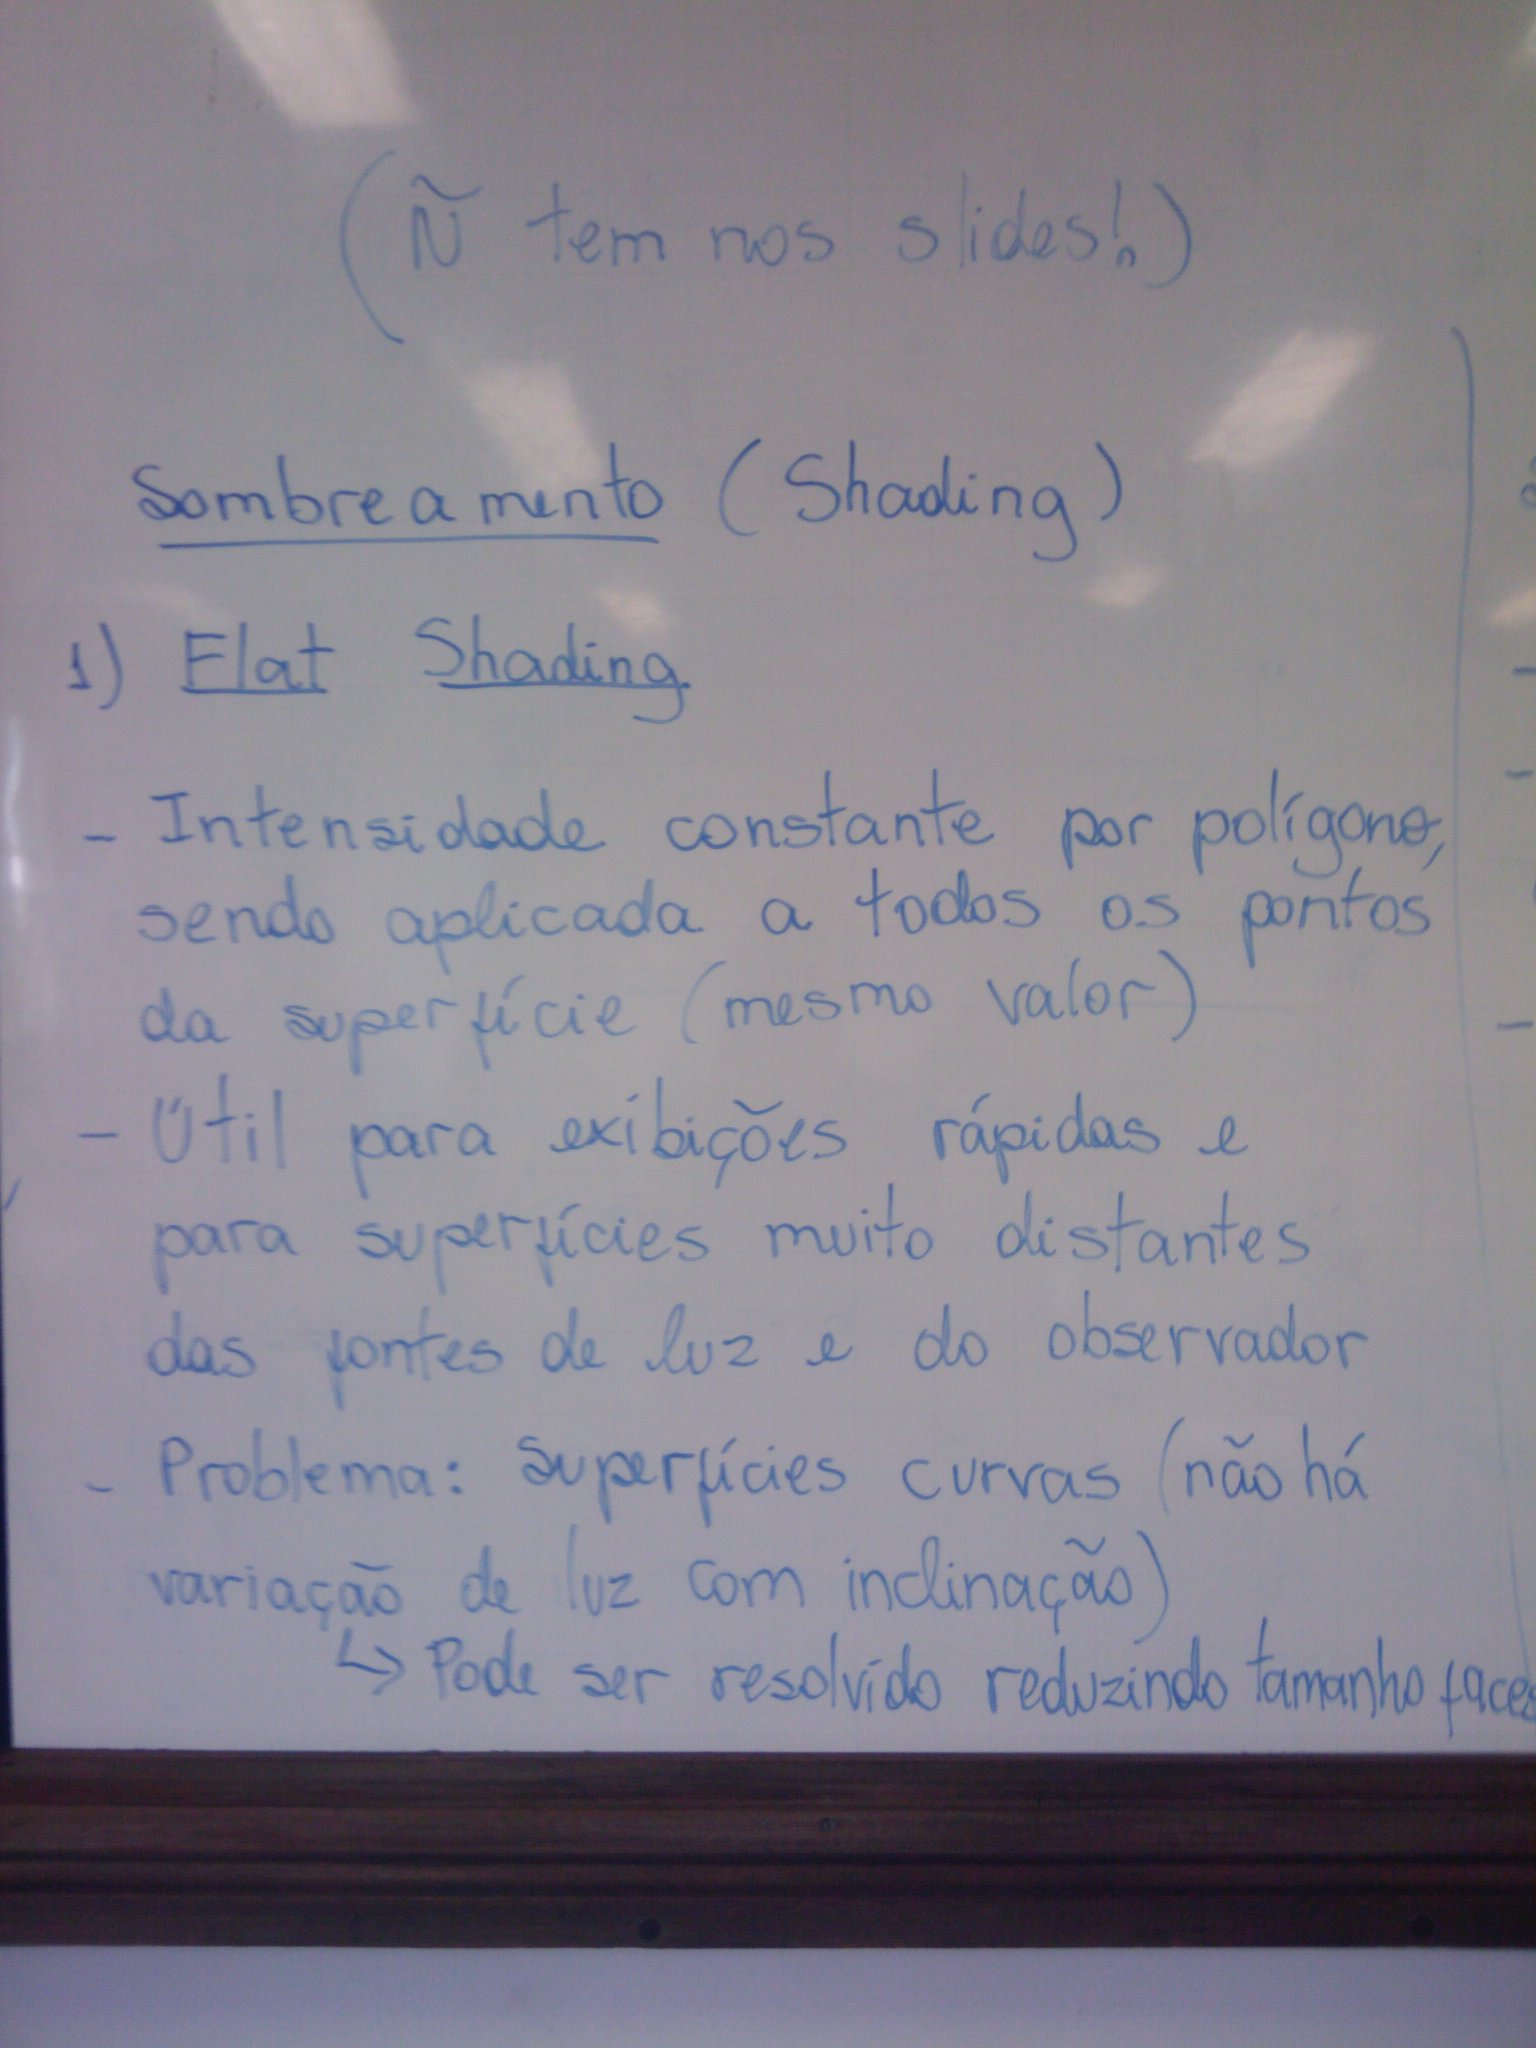 (Ñ tem nos slides!)
Sombreamento (Shading)
1) Flat Shading
- Intensidade constante por polígono,
sendo aplicada a todos os pontos
da superfície (mesmo valor)
- Útil para exibições rápidas e
para superfícies muito distantes
das fontes de luz e do observador
- Problema: superfícies curvas (não há
variação de luz com inclinação)
↳ Pode ser resolvido reduzindo tamanho faces